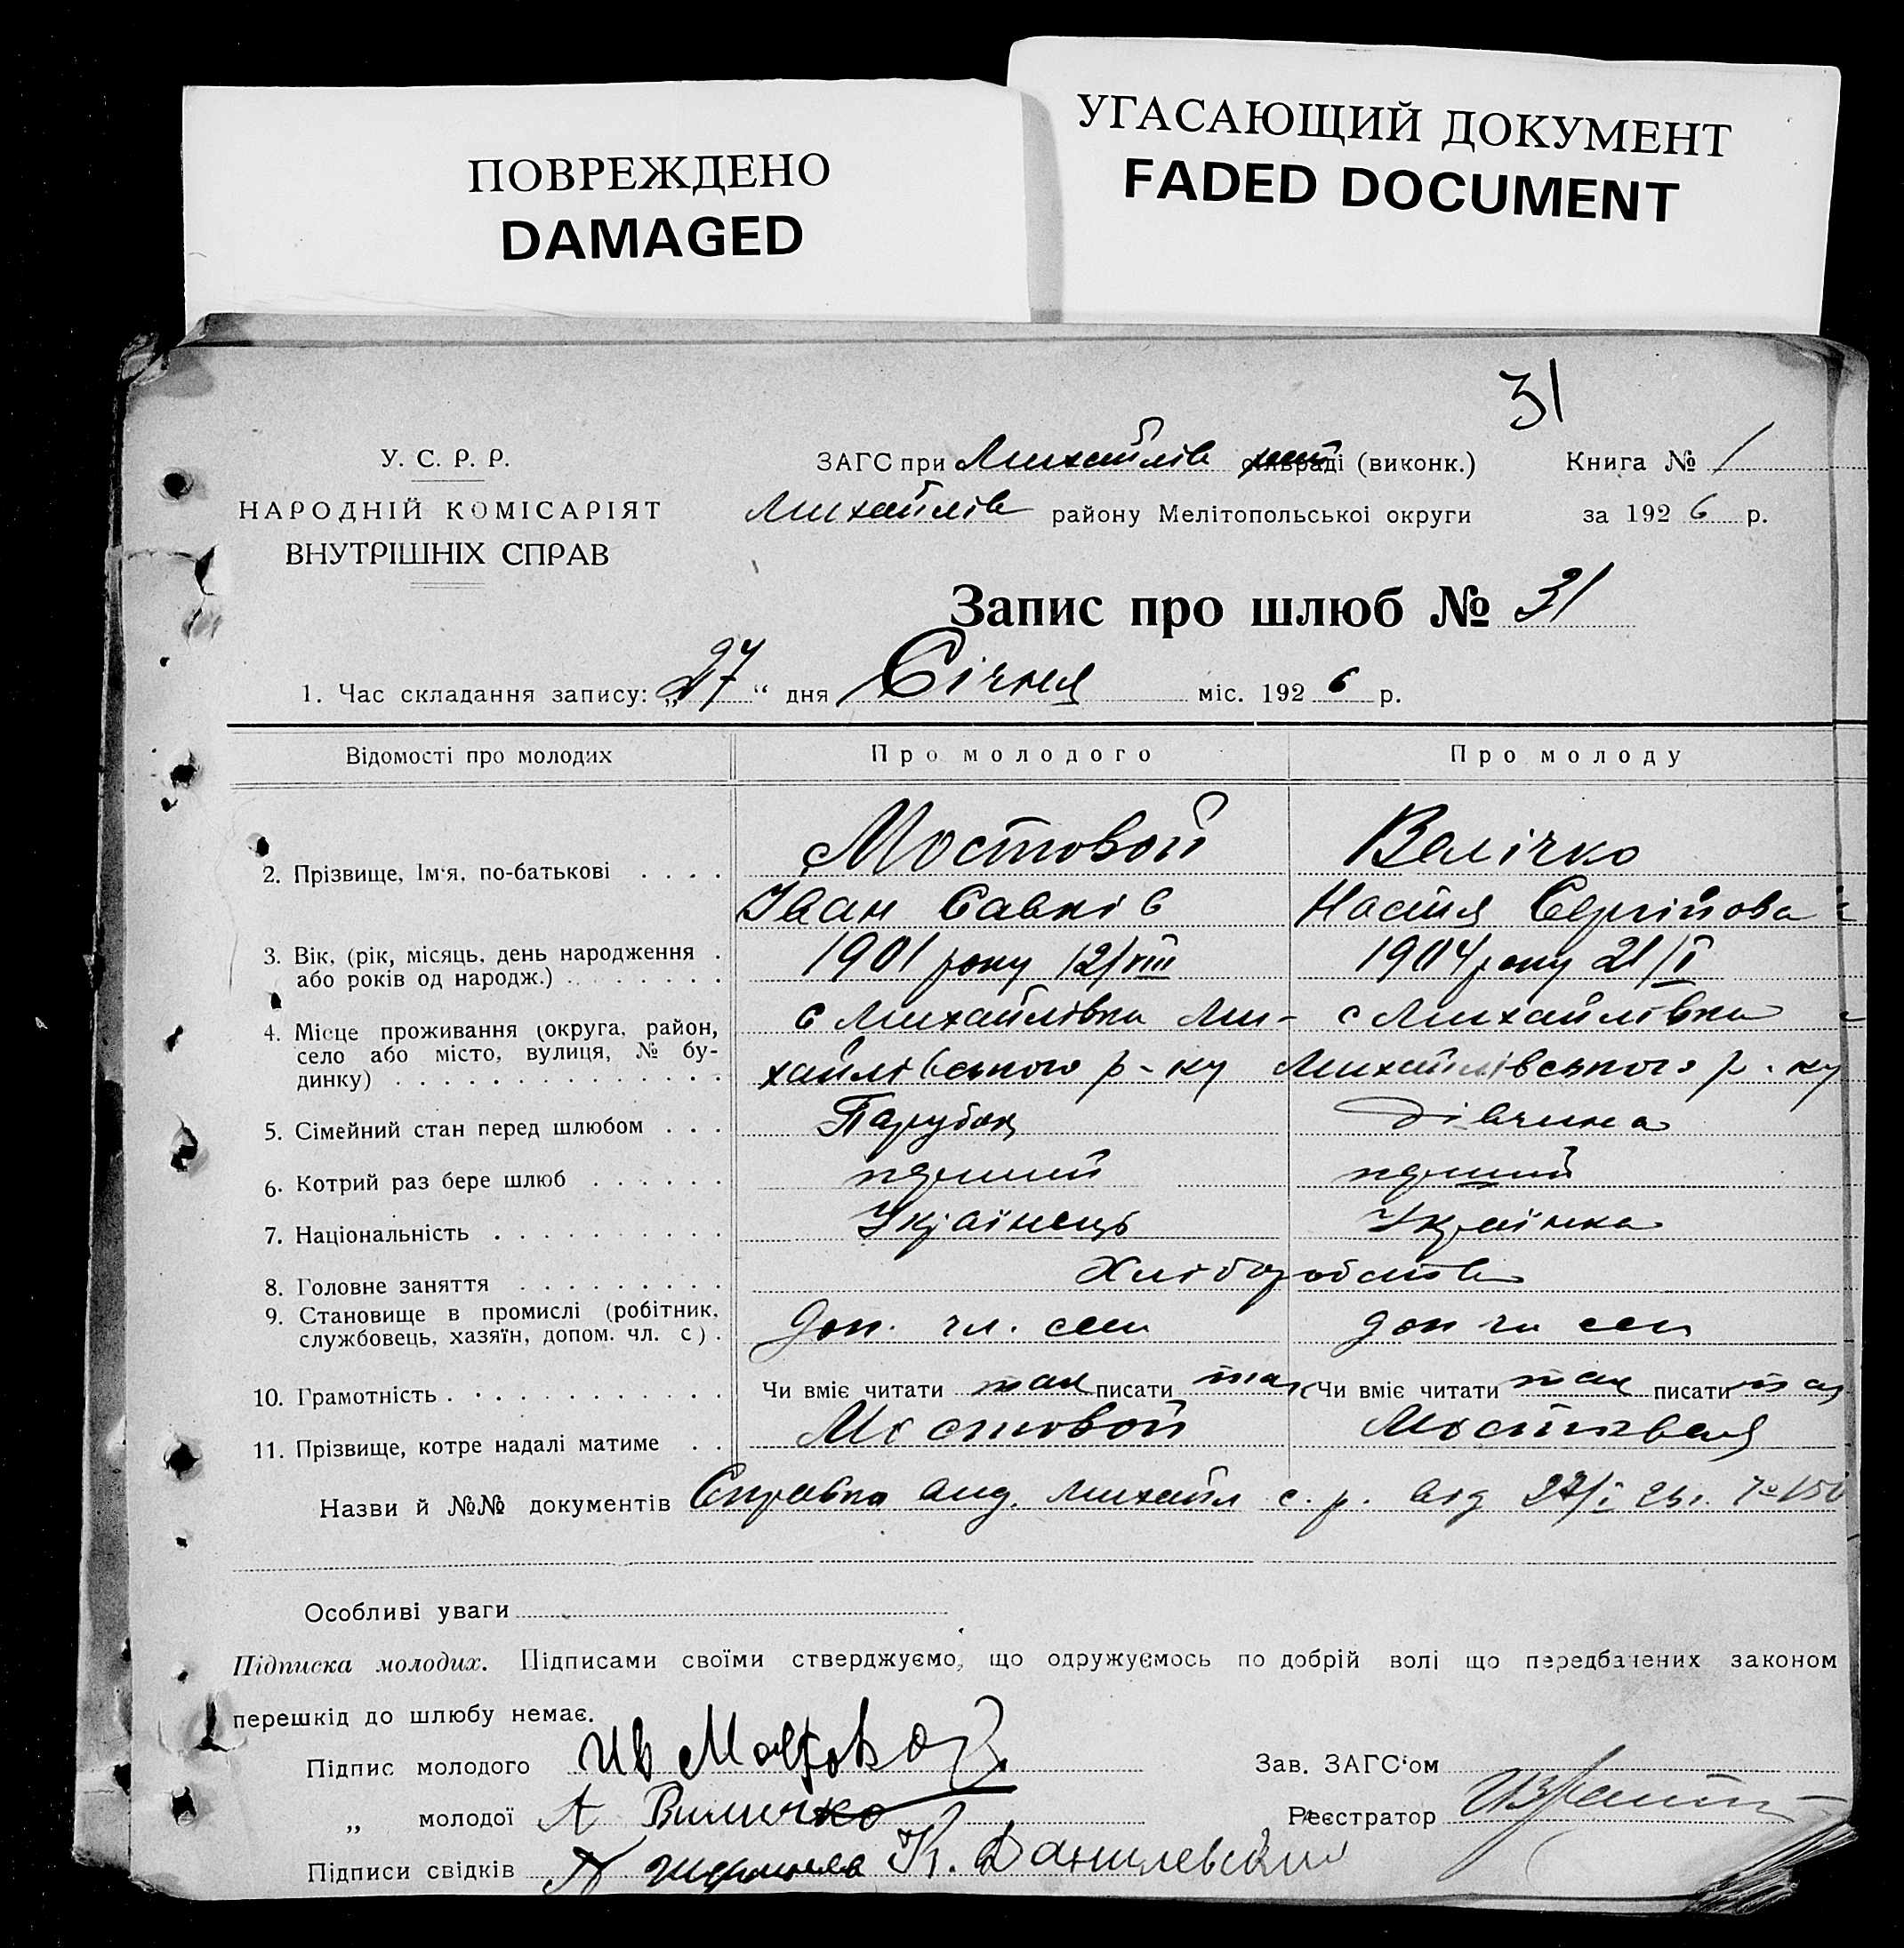 ПОВРЕЖДЕНО
DAMAGED
УГАСАЮЩИЙ ДОКУМЕНТ
FADED DOCUMENT
31
У. С. Р. Р.
НАРОДНІЙ КОМІСАРІЯТ
ВНУТРІШНІХ СПРАВ
ЗАГС при Михайлів сільраді (виконк.)
Книга № 1
Михайлів району Мелітопольської округи
за 1926 р.
Запис про шлюб № 31
1. Час складання запису: „27“ дня Січня міс. 1926 р.
Відомості про молодих
Про молодого
Про молоду
2. Прізвище, Ім‘я, по-батькові . . . .
Мостовой
Велічко
Іван Савків
Настя Сергійова
3. Вік, (рік, місяць, день народження .
або років од народж.) . . . . . . . .
1901 року 12/VIII
1904 року 21/I
4. Місце проживання (округа, район,
село або місто, вулиця, № бу-
динку) . . . . . . . . . . . . . .
с Михайлівка Ми-
хайлівського р-ку
с Михайлівка
Михайлівського р-ку
5. Сімейний стан перед шлюбом . . .
Парубок
дівчина
6. Котрий раз бере шлюб . . . . . .
перший
перший
7. Національність . . . . . . . . . .
Українець
Українка
8. Головне заняття . . . . . . . . .
Хліборобство
9. Становище в промислі (робітник,
службовець, хазяїн, допом. чл. с) .
доп. чл. сем
доп чл сем
10. Грамотність . . . . . . . . . . . .
Чи вміє читати так писати так
Чи вміє читати так писати так
11. Прізвище, котре надалі матиме . .
Мостовой
Мостовая
Назви й №№ документів Справка вид. Михайл с. р. від 27/I 26 г. № 150
Особливі уваги
Підписка молодих. Підписами своїми стверджуємо, що одружуємось по добрій волі що передбачених законом
перешкід до шлюбу немає.
Підпис молодого Ив Мостовой
Зав. ЗАГС‘ом
„ молодої А Виличко
Реєстратор
Підписи свідків К. Данилевский